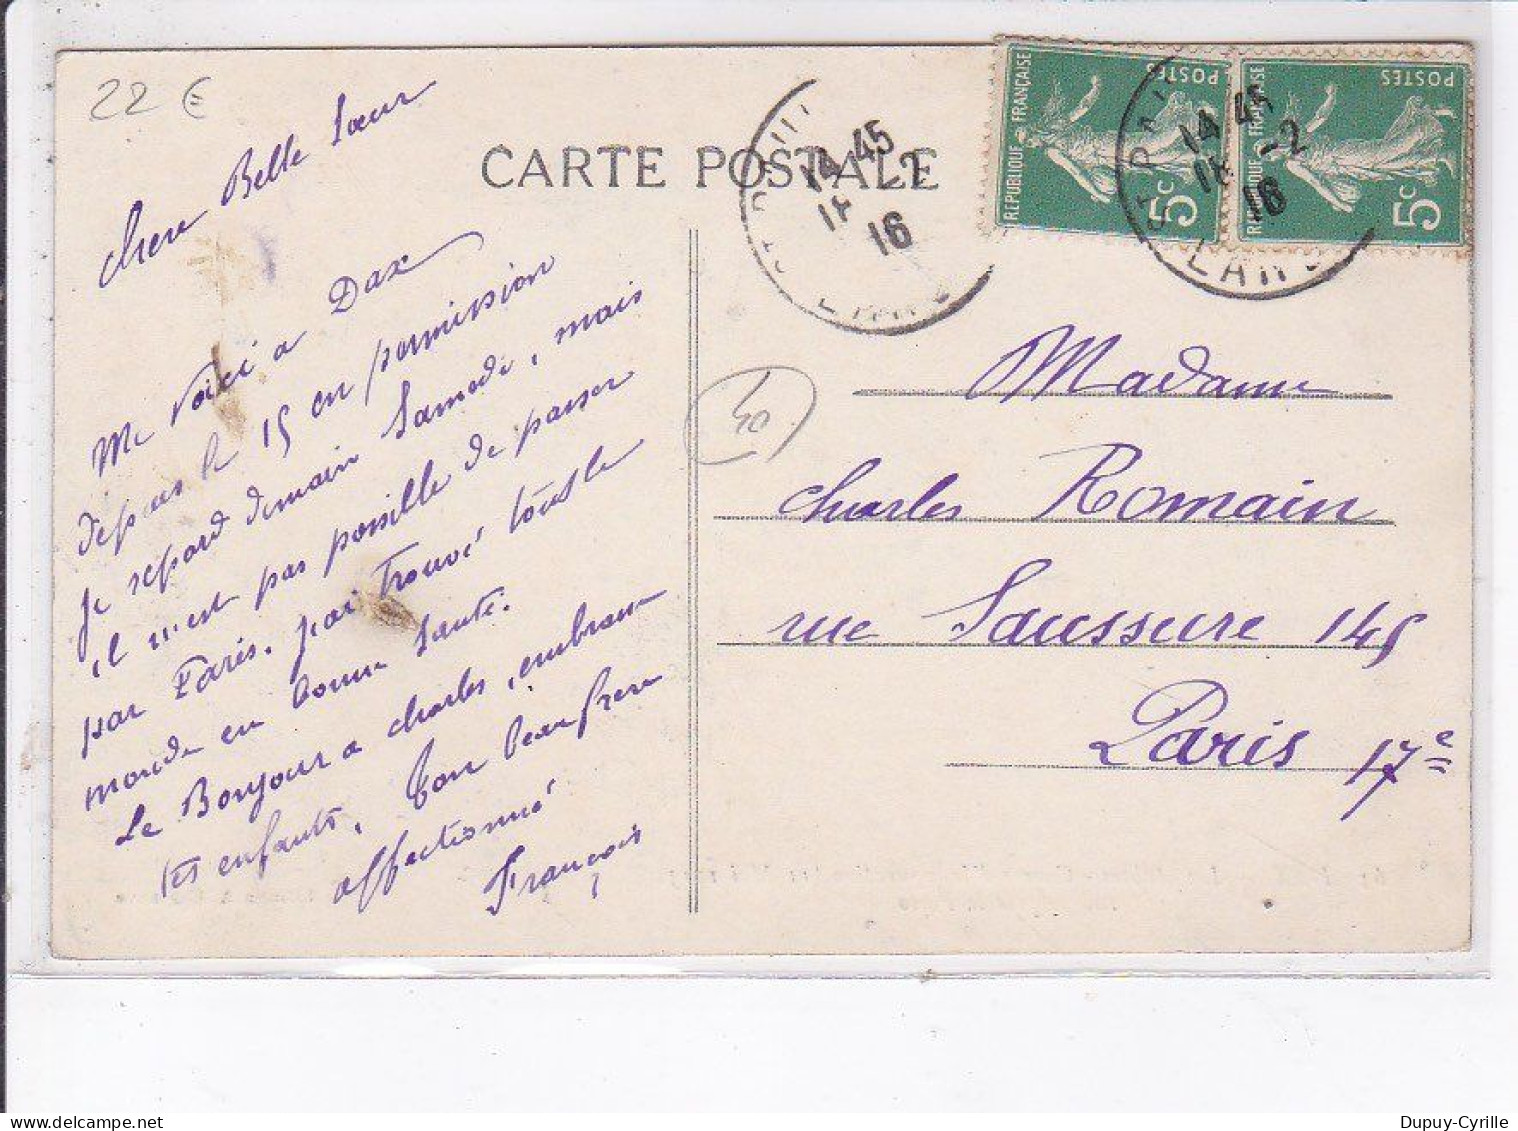 22 €
CARTE POSTALE
chere Belle Sœur
Me voici a Dax
depuis le 15 en permission
je repard demain Samedi, mais
il n'est pas possible de passer
par Paris. j'ai trouvé tous le
monde en bonne santé.
Le Bonjour a charles, embrasse
tes enfants. Ton beau frere
affectionné
François
RÉPUBLIQUE FRANÇAISE
POSTES
5c
POSTES
5c
14 45
-2
16
14 45
-2
16
40
Madame
charles Romain
rue Saussure 145
Paris 17e
Dupuy-Cyrille